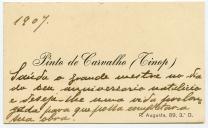 1907.
Pinto de Carvalho (Tinop)
Saúda o grande mestre no dia
do seu anniversario natalicio
e deseja-lhe uma vida prolon
gada para que possa completar a
sua obra.
R. Augusta, 89, 3.º D.